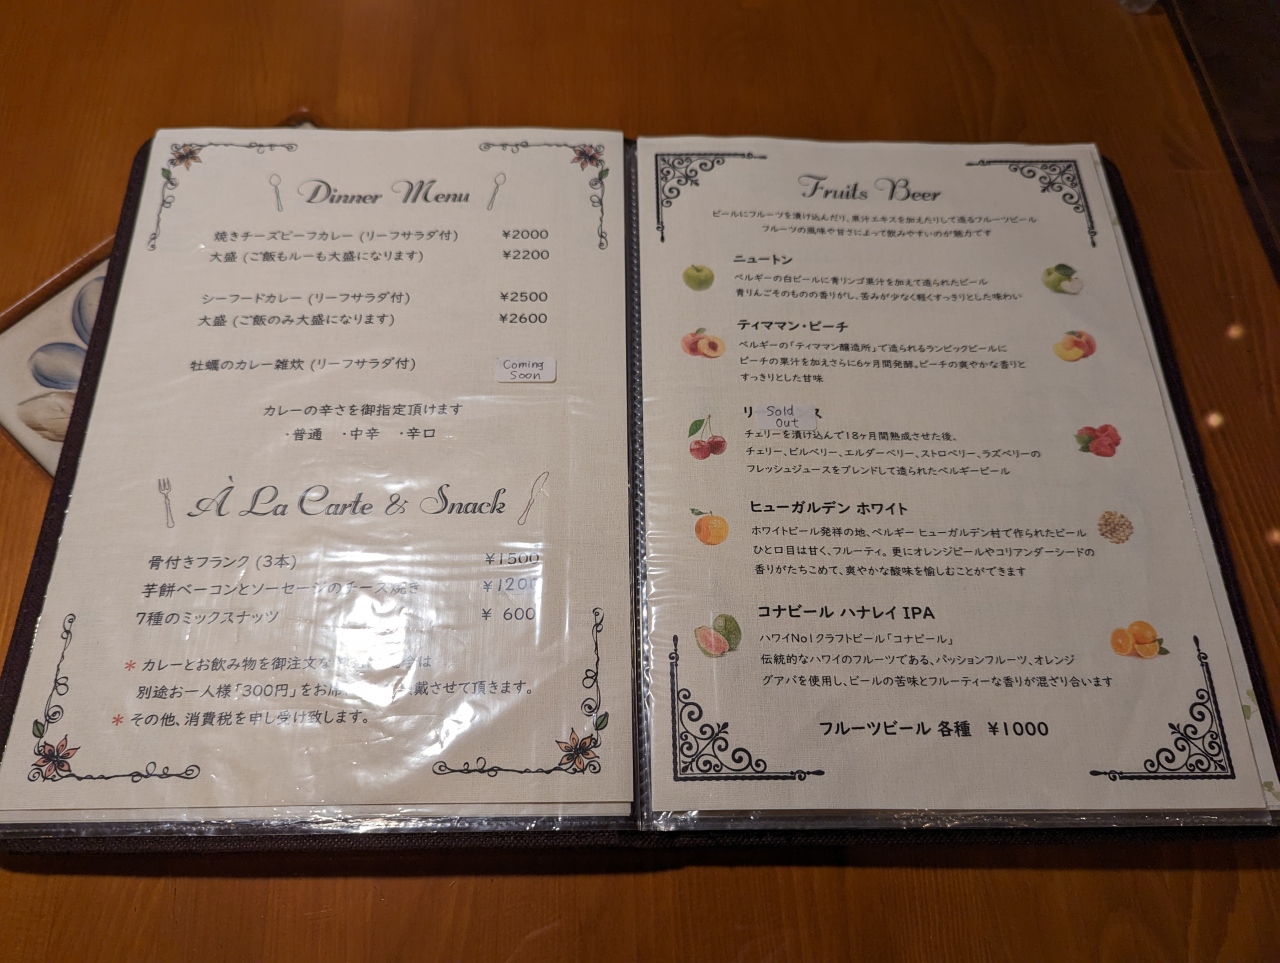 Dinner Menu
焼きチーズビーフカレー (リーフサラダ付) ¥2000
大盛 (ご飯もルーも大盛になります) ¥2200
シーフードカレー (リーフサラダ付) ¥2500
大盛 (ご飯のみ大盛になります) ¥2600
牡蠣のカレー雑炊 (リーフサラダ付) Coming Soon
カレーの辛さを御指定頂けます
・普通 ・中辛 ・辛口
À La Carte & Snack
骨付きフランク (3本) ¥1500
芋餅ベーコンとソーセージのチーズ焼き ¥1200
7種のミックスナッツ ¥ 600
* カレーとお飲み物を御注文な
別途お一人様「300円」をお席 戴させて頂きます。
* その他、消費税を申し受け致します。
Fruits Beer
ビールにフルーツを漬け込んだり、果汁エキスを加えたりして造るフルーツビール
フルーツの風味や甘さによって飲みやすいのが魅力です
ニュートン
ベルギーの白ビールに青リンゴ果汁を加えて造られたビール
青りんごそのものの香りがし、苦みが少なく軽くすっきりとした味わい
ティママン・ピーチ
ベルギーの「ティママン醸造所」で造られるランビックビールに
ピーチの果汁を加えさらに6ヶ月間発酵。ピーチの爽やかな香りと
すっきりとした甘味
リ Sold Out ス
チェリーを漬け込んで18ヶ月間熟成させた後、
チェリー、ビルベリー、エルダーベリー、ストロベリー、ラズベリーの
フレッシュジュースをブレンドして造られたベルギービール
ヒューガルデン ホワイト
ホワイトビール発祥の地、ベルギー ヒューガルデン村で作られたビール
ひと口目は甘く、フルーティ。更にオレンジピールやコリアンダーシードの
香りがたちこめて、爽やかな酸味を愉しむことができます
コナビール ハナレイ IPA
ハワイNo1クラフトビール「コナビール」
伝統的なハワイのフルーツである、パッションフルーツ、オレンジ
グアバを使用し、ビールの苦味とフルーティーな香りが混ざり合います
フルーツビール 各種 ¥1000